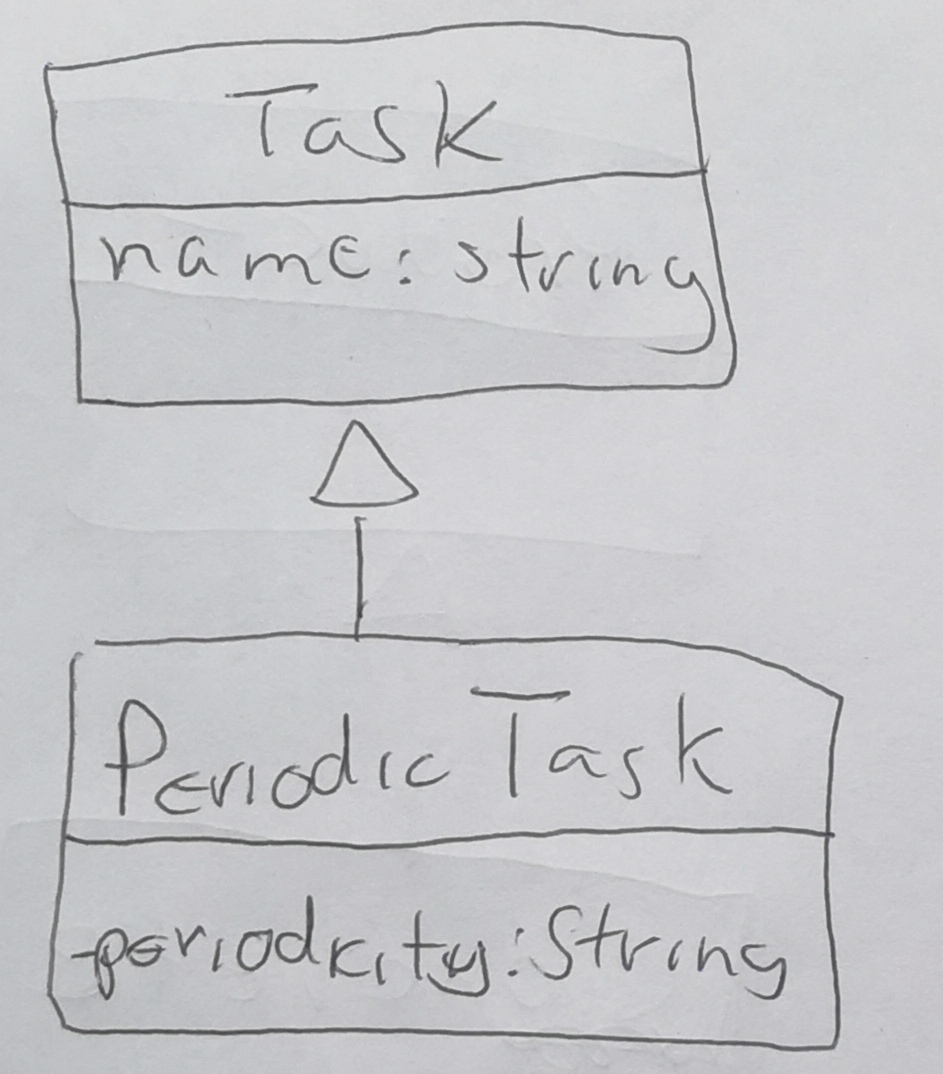 Task
name: string
Periodic Task
-periodicity: String